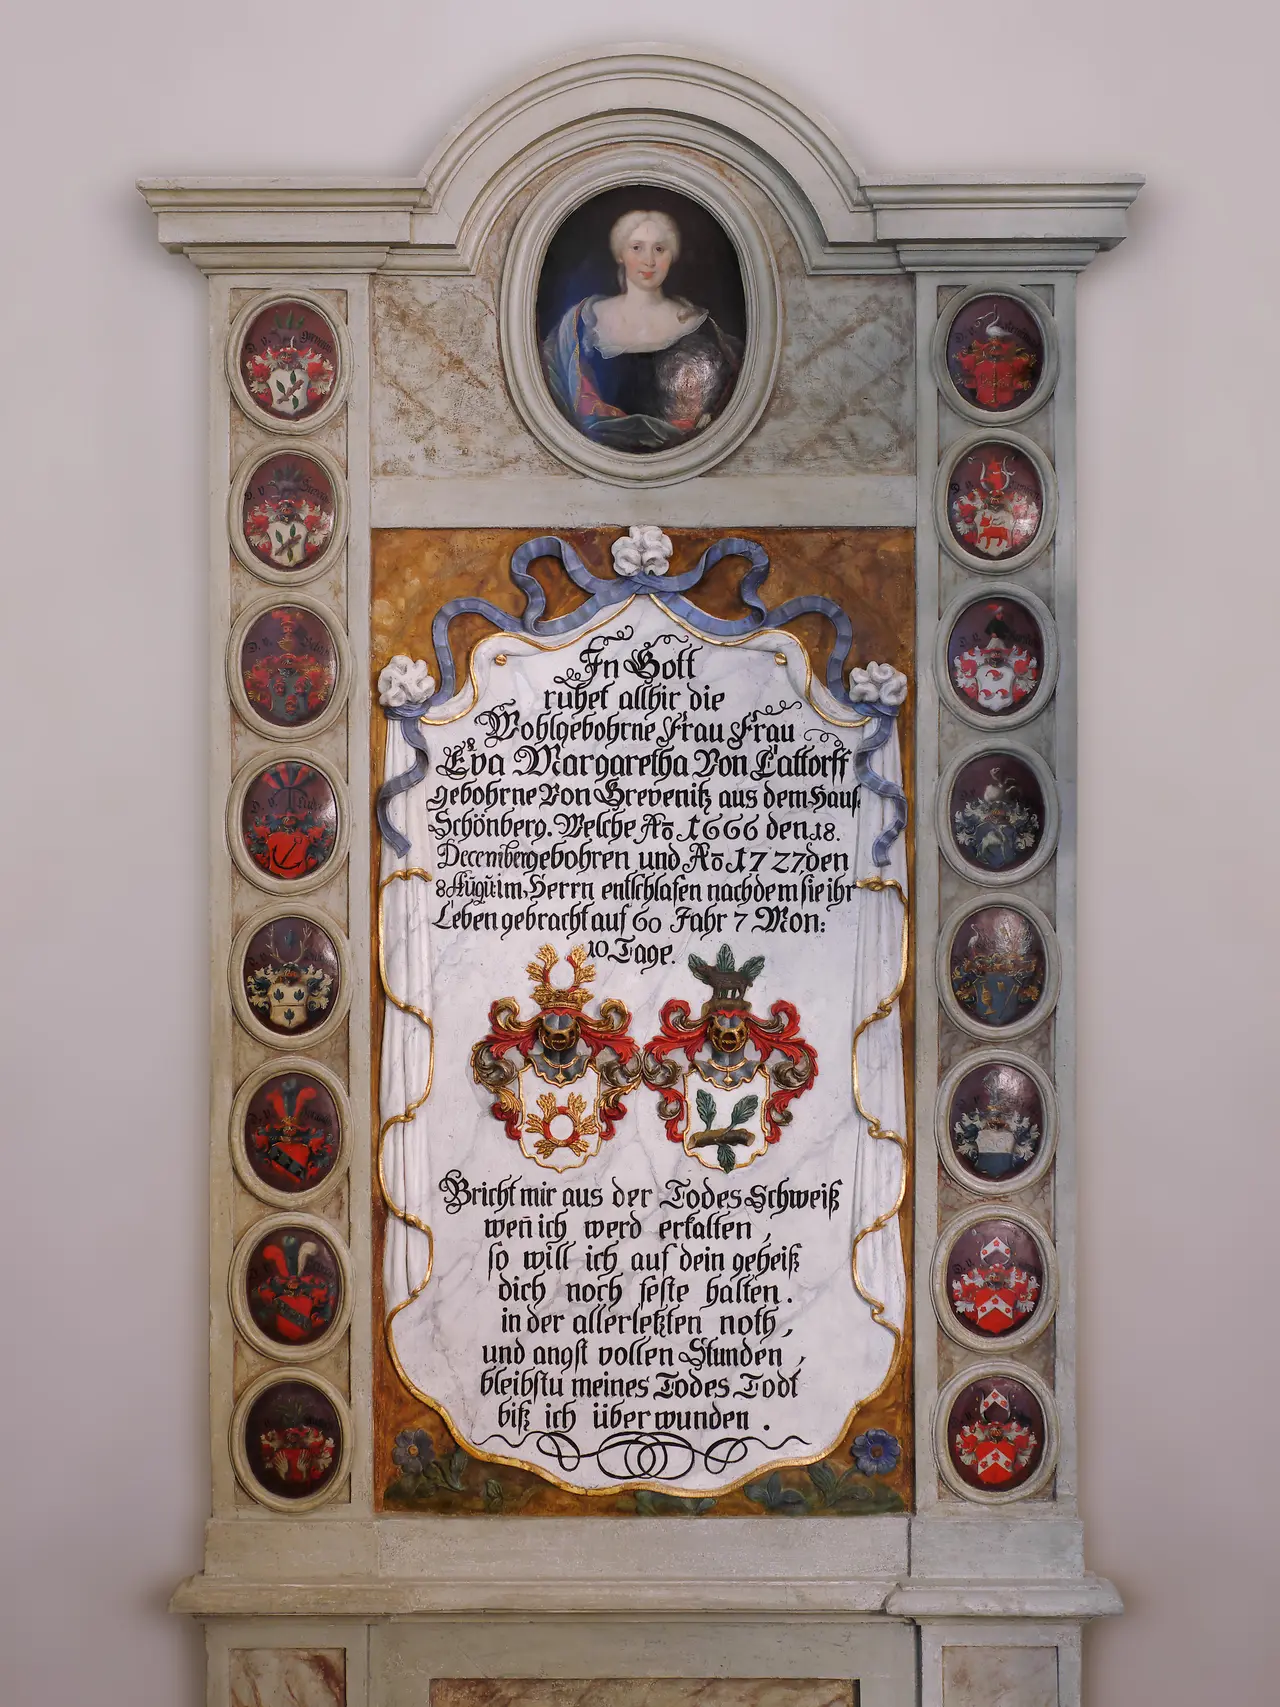 In Gott
ruhet allhir die
Wohlgebohrne Frau Frau
Eva Margaretha Von Lattorff
gebohrne Von Grevenitz aus dem Hause
Schönberg. Welche Aō 1666 den 18.
December gebohren und Aō 1727 den
8 Augu: im Herrn entschlafen nachdem sie ihr
Leben gebracht auf 60 Jahr 7 Mon:
10 Tage.
Bricht mir aus der Todes Schweiß
wen̄ ich werd erkalten,
so will ich auf dein geheiß
dich noch feste halten.
in der allerletzten noth,
und angst vollen Stunden,
bleibstu meines Todes Todt
biß ich überwunden.
D. v.
D. v.
D. v.
D. v.
D. v.
D. v.